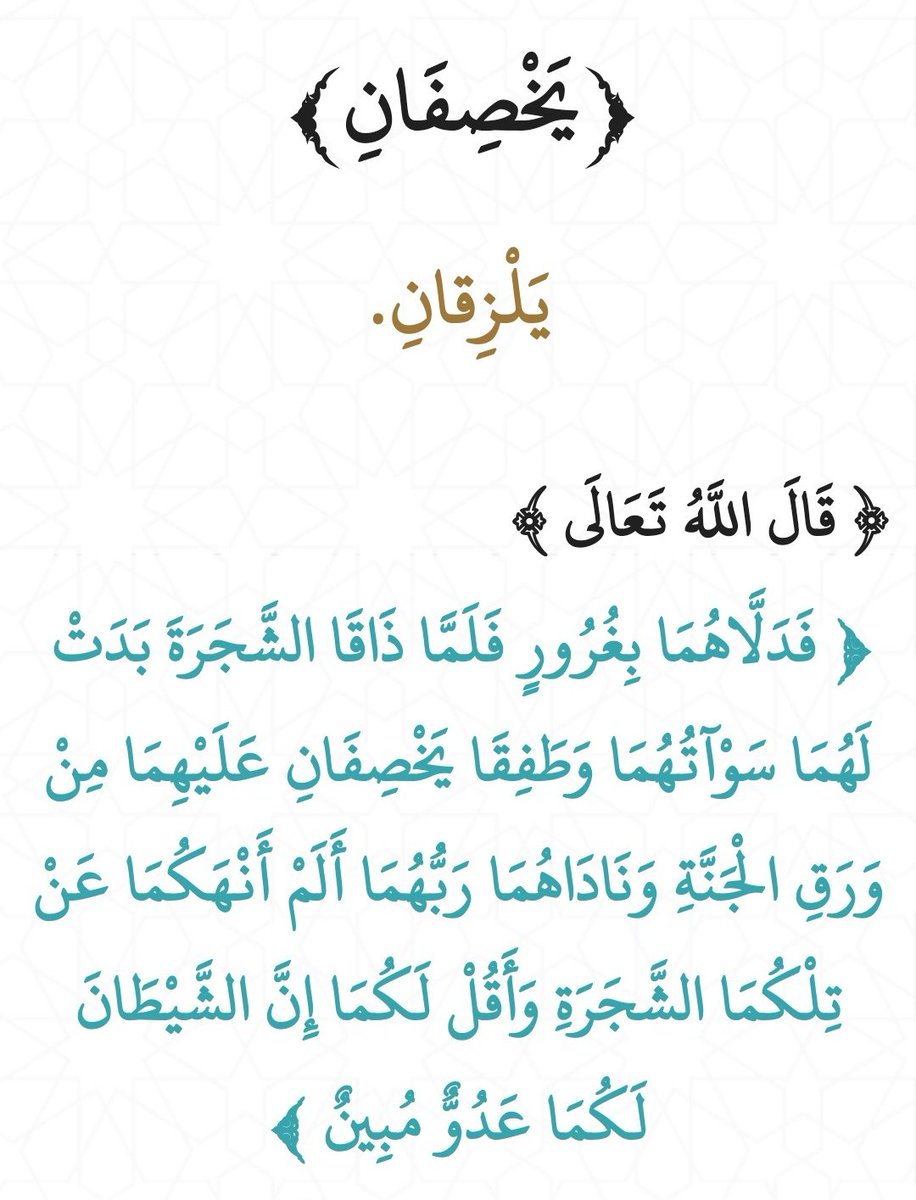 ﴿يَخْصِفَانِ﴾
يَلْزِقانِ.
﴿ قَالَ اللَّهُ تَعَالَى ﴾
﴿ فَدَلَّاهُمَا بِغُرُورٍ فَلَمَّا ذَاقَا الشَّجَرَةَ بَدَتْ
لَهُمَا سَوْآتُهُمَا وَطَفِقَا يَخْصِفَانِ عَلَيْهِمَا مِنْ
وَرَقِ الْجَنَّةِ وَنَادَاهُمَا رَبُّهُمَا أَلَمْ أَنْهَكُمَا عَنْ
تِلْكُمَا الشَّجَرَةِ وَأَقُلْ لَكُمَا إِنَّ الشَّيْطَانَ
لَكُمَا عَدُوٌّ مُبِينٌ ﴾